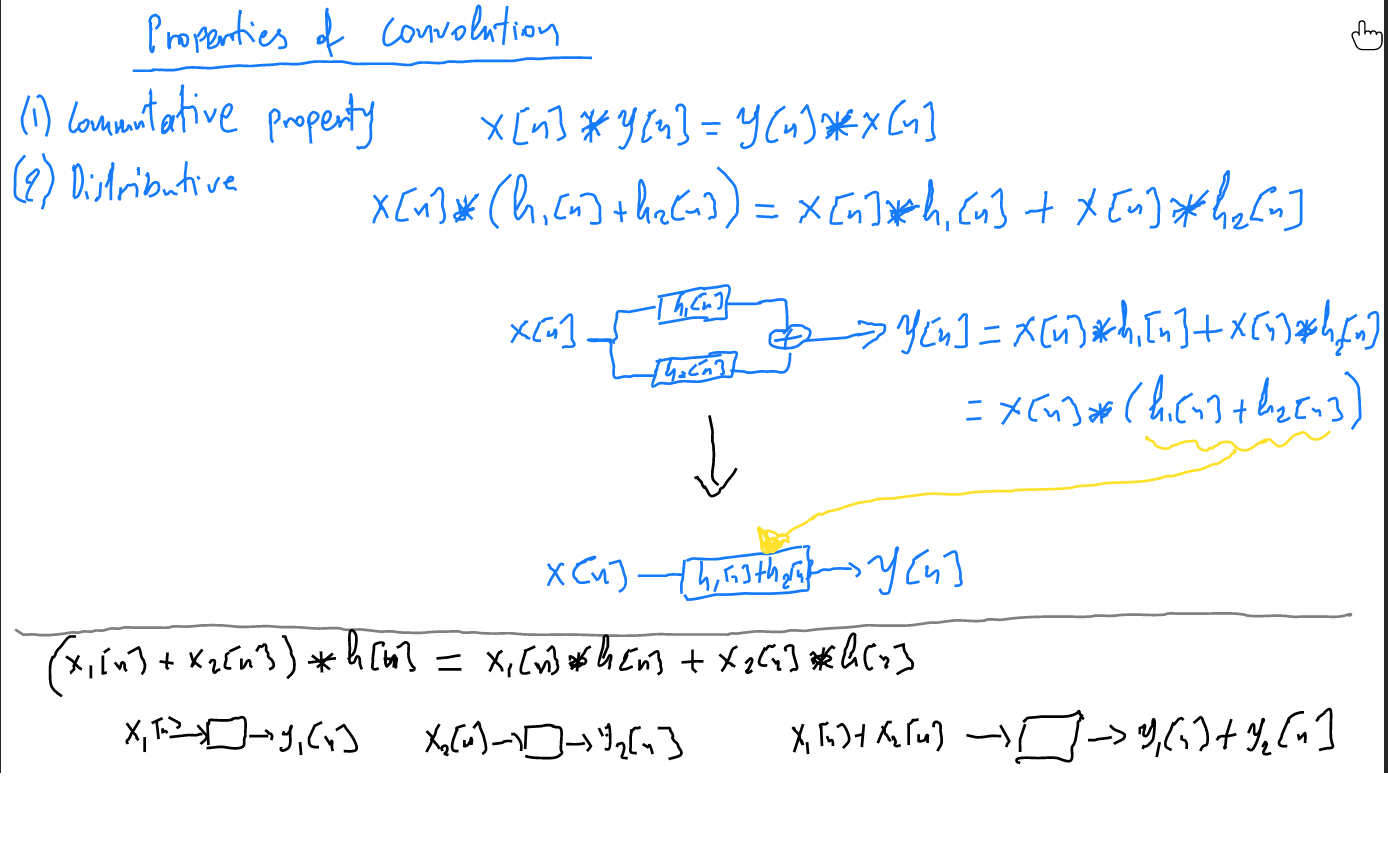 Properties of convolution
(1) Commutative property x[n] * y[n] = y[n] * x[n]
(2) Distributive
x[n] * (h₁[n] + h₂[n]) = x[n] * h₁[n] + x[n] * h₂[n]
h₁[n]
x[n] + → y[n] = x[n] * h₁[n] + x[n] * h₂[n]
h₂[n]
= x[n] * (h₁[n] + h₂[n])
x[n] h₁[n]+h₂[n] → y[n]
(x₁[n] + x₂[n]) * h[n] = x₁[n] * h[n] + x₂[n] * h[n]
x₁[n] → → y₁[n] x₂[n] → → y₂[n] x₁[n] + x₂[n] → → y₁[n] + y₂[n]